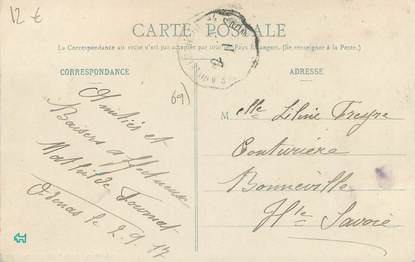 12 €
CARTE POSTALE
La Correspondance au recto n'est pas acceptée par tous les Pays Etrangers. (Se renseigner à la Poste.)
CORRESPONDANCE
ADRESSE
69
Amitiés et
Baisers affectueux
Mathilde Fournat
Odenas le 2.9.17
Melle Liline Freyre
Couturière
Bonneville
Hte Savoie